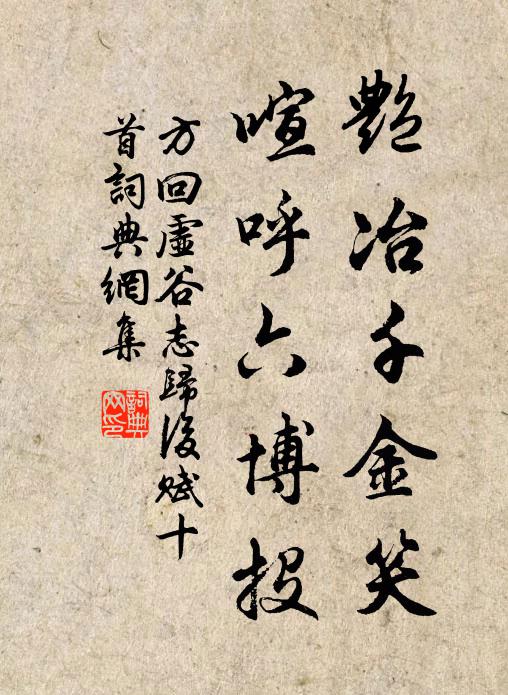 艷冶千金笑
喧呼六博投
方回虛谷志歸後賦十
首詞典網集
詞典网印